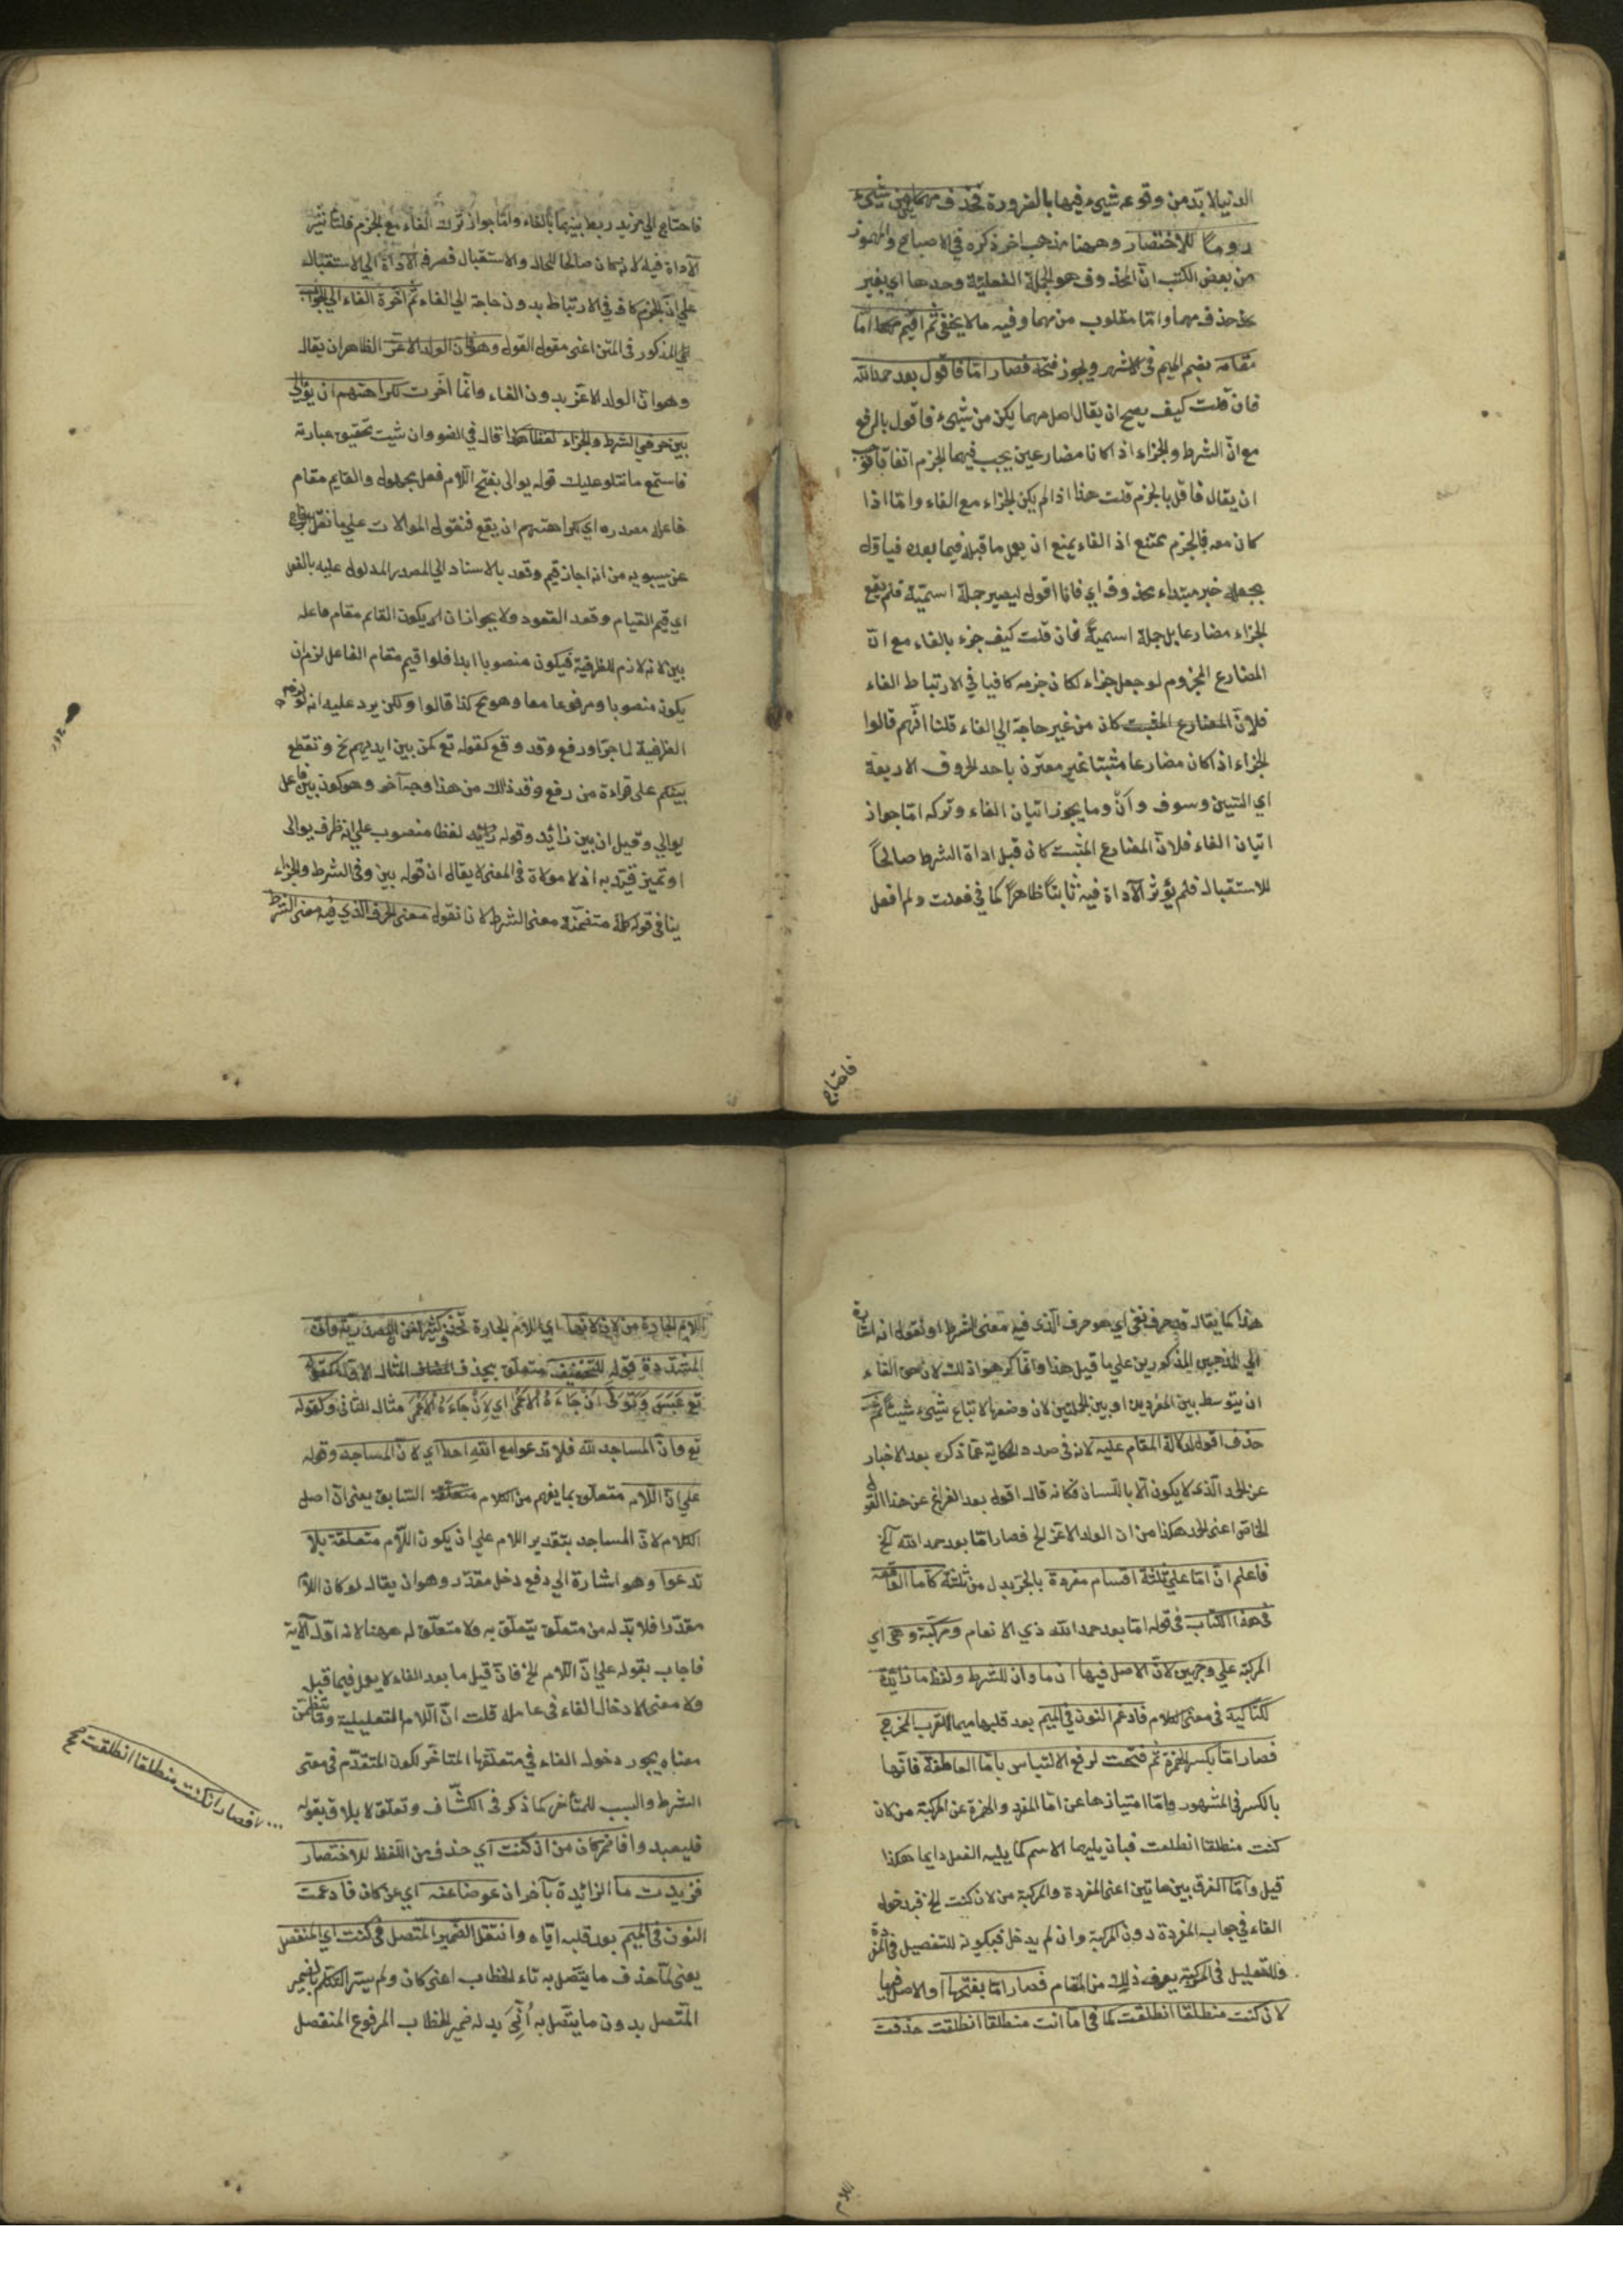 الدنيا لا بد من وقوعه شيء فيها بالضرورة فحذف مهما يكن من شيء
روما للاختصار وههنا مذهب اخر ذكره في الاصباح والرموز
من بعض الكتب ان المحذوف هو الجملة الفعلية وحدها اي بغير
حذف مهما واما مقلوب من مهما وفيه ما لا يخفى ثم اقيم مهما اما
مقامه بضم الميم في الاشهر ويجوز فتحه فصار اما فاقول بعد حمد الله
فان قلت كيف يصح ان يقال اصل مهما يكن من شيء فاقول بالرفع
مع ان الشرط والجزاء اذا كانا مضارعين يجب فيهما الجزم اتفاقا فوجب
ان يقال فاقل بالجزم قلت هذا اذا لم يكن الجزاء مع الفاء واما اذا
كان معه فالجزم ممتنع اذ الفاء يمنع ان يعمل ما قبله فيما بعده فيأول
بجعله خبر مبتداء محذوف اي فانا اقول ليصير جملة اسمية فلم يقع
الجزاء مضارعا بل جملة اسمية فان قلت كيف جزء بالفاء مع ان
المضارع المجزوم لو جعل جزاء لكان جزمه كافيا في الارتباط الفاء
فلان المضارع المثبت كان من غير حاجة الي الفاء قلنا انهم قالوا
الجزاء اذا كان مضارعا مثبتا غير مقترن باحد الحروف الاربعة
اي السين وسوف و ان وما يجوز اتيان الفاء وتركه اما جواز
اتيان الفاء فلان المضارع المثبت كان قبل اداة الشرط صالحا
للاستقبال فلم يؤثر الاداة فيه ثابتا ظاهرا كما في فعلت ولم افعل
فاحتاج
فاحتاج الي مزيد ربط بينهما بالفاء واما جواز ترك الفاء مع الجزم فلتأثير
الاداة فيه لانه كان صالحا للحال والاستقبال فصرفه الاداة الي الاستقبال
علي ان الجزم كاف في الارتباط بدون حاجة الي الفاء ثم اخرة الفاء الي الجواب
اي المذكور في المتن اعني مقول القول وهو ان الولد الاعز الظاهر ان يقال
وهو ان الولد الاعز بدون الفاء وانما اخرت لكراهتهم ان يوالي
بين حرفي الشرط والجزاء لفظا هكذا قال في الضوء وان شيت تحقيق عبارته
فاستمع ما نتلو عليك قوله يوالى بفتح اللام فعل مجهول والقايم مقام
فاعله مصدره اي كراهتهم ان يقع فنقول الموالات علي ما نقل
عن سيبويه من انه اجاز قيم وقعد بالاسناد الي المصدر المدلول عليه بالفعل
اي قيم القيام وقعد القعود ولا يجوز ان يكون القايم مقام فاعله
بين لانه لازم للظرفية فيكون منصوبا ابدا فلو اقيم مقام الفاعل لزم ان
يكون منصوبا ومرفوعا معا وهو مح كذا قالوا ولكن يرد عليه انه لو لزم
الظرفية لما جر او رفع وقد وقع كقوله تع كمن بين ايديهم نح وتقطع
بينكم على قراءة من رفع وقد ذلك من هذا وجه آخر وهو كون بين فاعل
يوالي وقيل ان بين زائد وقوله لفظا منصوب علي انه ظرف يوالى
او تميز قيد به اذ لا موالاة في المعنى لا يقال ان قوله بين وفي الشرط والجزاء
ينافي قوله كلمة متضمنة معنى الشرط لانا نقول معنى الحرف الذي فيه معنى الشرط
هذا كما يقال قد حرف نفي اي هو حرف الذي فيه معنى الشرط او نقول انه اشارة
الي المذهبين المذكورين علي ما قيل هذا وانما كرهوا ذلك لان حق الفاء
ان يتوسط بين المفردين او بين الجملتين لان وضعها لاتباع شيء شيئا ثم
حذف اقول لدلالة المقام عليه لانه في صدد الحكاية عما ذكره بعد الاخبار
عن الحمد الذي لا يكون الا باللسان فكانه قال اقول بعد الفراغ عن هذا القول
الخاص اعني الحمد هكذا من ان الولد الاعز الخ فصار اما بعد حمد الله الخ
فاعلم ان اما علي ثلثة اقسام مفردة بالجر بدل من ثلثة كاما الواقعة
في هذا الكتاب في قوله اما بعد حمد الله ذي الانعام ومركبة وهي اي
المركبة علي وجهين لان الاصل فيها ان ما وان للشرط ولفظ ما زائدة
لتاكيد في معنى الكلام فادغم النون في الميم بعد قلبها ميما لقرب المخرج
فصار اما بكسر الهمزة ثم فتحت لرفع الالتباس باما العاطفة فانها
بالكسر في المشهور واما امتيازها عن اما المفرد والهمزة عن المركبة من لان
كنت منطلقا انطلقت فبان يليهما الاسم كما يليه الفعل دايما هكذا
قيل واما الفرق بين هاتين اعني المفردة والمركبة من لان كنت الخ فبدخول
الفاء في جواب المفردة دون المركبة وان لم يدخل فبكونه للتفصيل في المفردة
وللتعليل في المركبة يعرف ذلك من المقام فصار اما بفتحها او الاصل فيها
لان كنت منطلقا انطلقت كما في اما انت منطلقا انطلقت حذفت
اللام
اللام الجارة من لان لانها اي اللام الجارة تحذف كثيرا من ان المصدرية وان
المشددة قوله للتخفيف متعلق بحذف المضاف المثال الاول كقوله
تع عبس وتولى ان جاءه الاعمى اي لان جاءه الاعمى مثال الثاني وكقوله
تع وان المساجد لله فلا تدعوا مع الله احدا اي لان المساجد وقوله
علي ان اللام متعلق بما يفهم من الكلام متعلقة السابق يعني ان اصل
الكلام لان المساجد بتقدير اللام علي ان يكون اللام متعلقة بلا
تدعوا وهو اشارة الي دفع دخل مقدر وهو ان يقال لو كان اللام
مقدرا فلا بد له من متعلق يتعلق به ولا متعلق له ههنا لانه اول الآية
فاجاب بقوله علي ان اللام الخ فان قيل ما بعد الفاء لا يعمل فيما قبل
ولا معنى لادخال الفاء في عامله قلت ان اللام التعليلية وما تتضمن
معناه يجور دخول الفاء في متعلقها المتاخر لكون المتقدم في معنى
الشرط والسبب للمتأخر كما ذكر في الكشاف وتعلق لايلاف بقوله
فليعبدوا فانحركان من ان كنت اي حذف من اللفظ للاختصار
فزيدت ما الزائدة بآخر ان عوضا عنه اي عن كان فادغمت
النون في الميم بعد قلبه اياه وانتقل الضمير المتصل في كنت اي المنفصل
يعني لما حذف ما يتصل به تاء الخطاب اعني كان ولم يتيسر التكلم بالضمير
المتصل بدون ما يتصل به أتي بدله ضمير الخطاب المرفوع المنفصل
فصار ان كنت منطلقا انطلقت صح